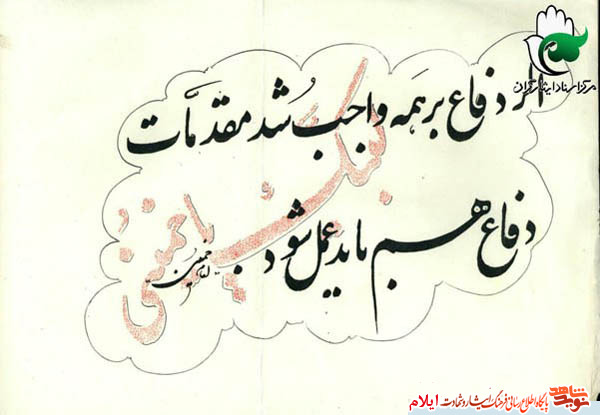 مرکز اسناد ایثارگران
اگر دفاع بر همه واجب شد مقدمات
دفاع هم باید عمل شود
امام خمینی
یا خمینی
نوید شاهد پایگاه اطلاع رسانی فرهنگ ایثار و شهادت ایلام